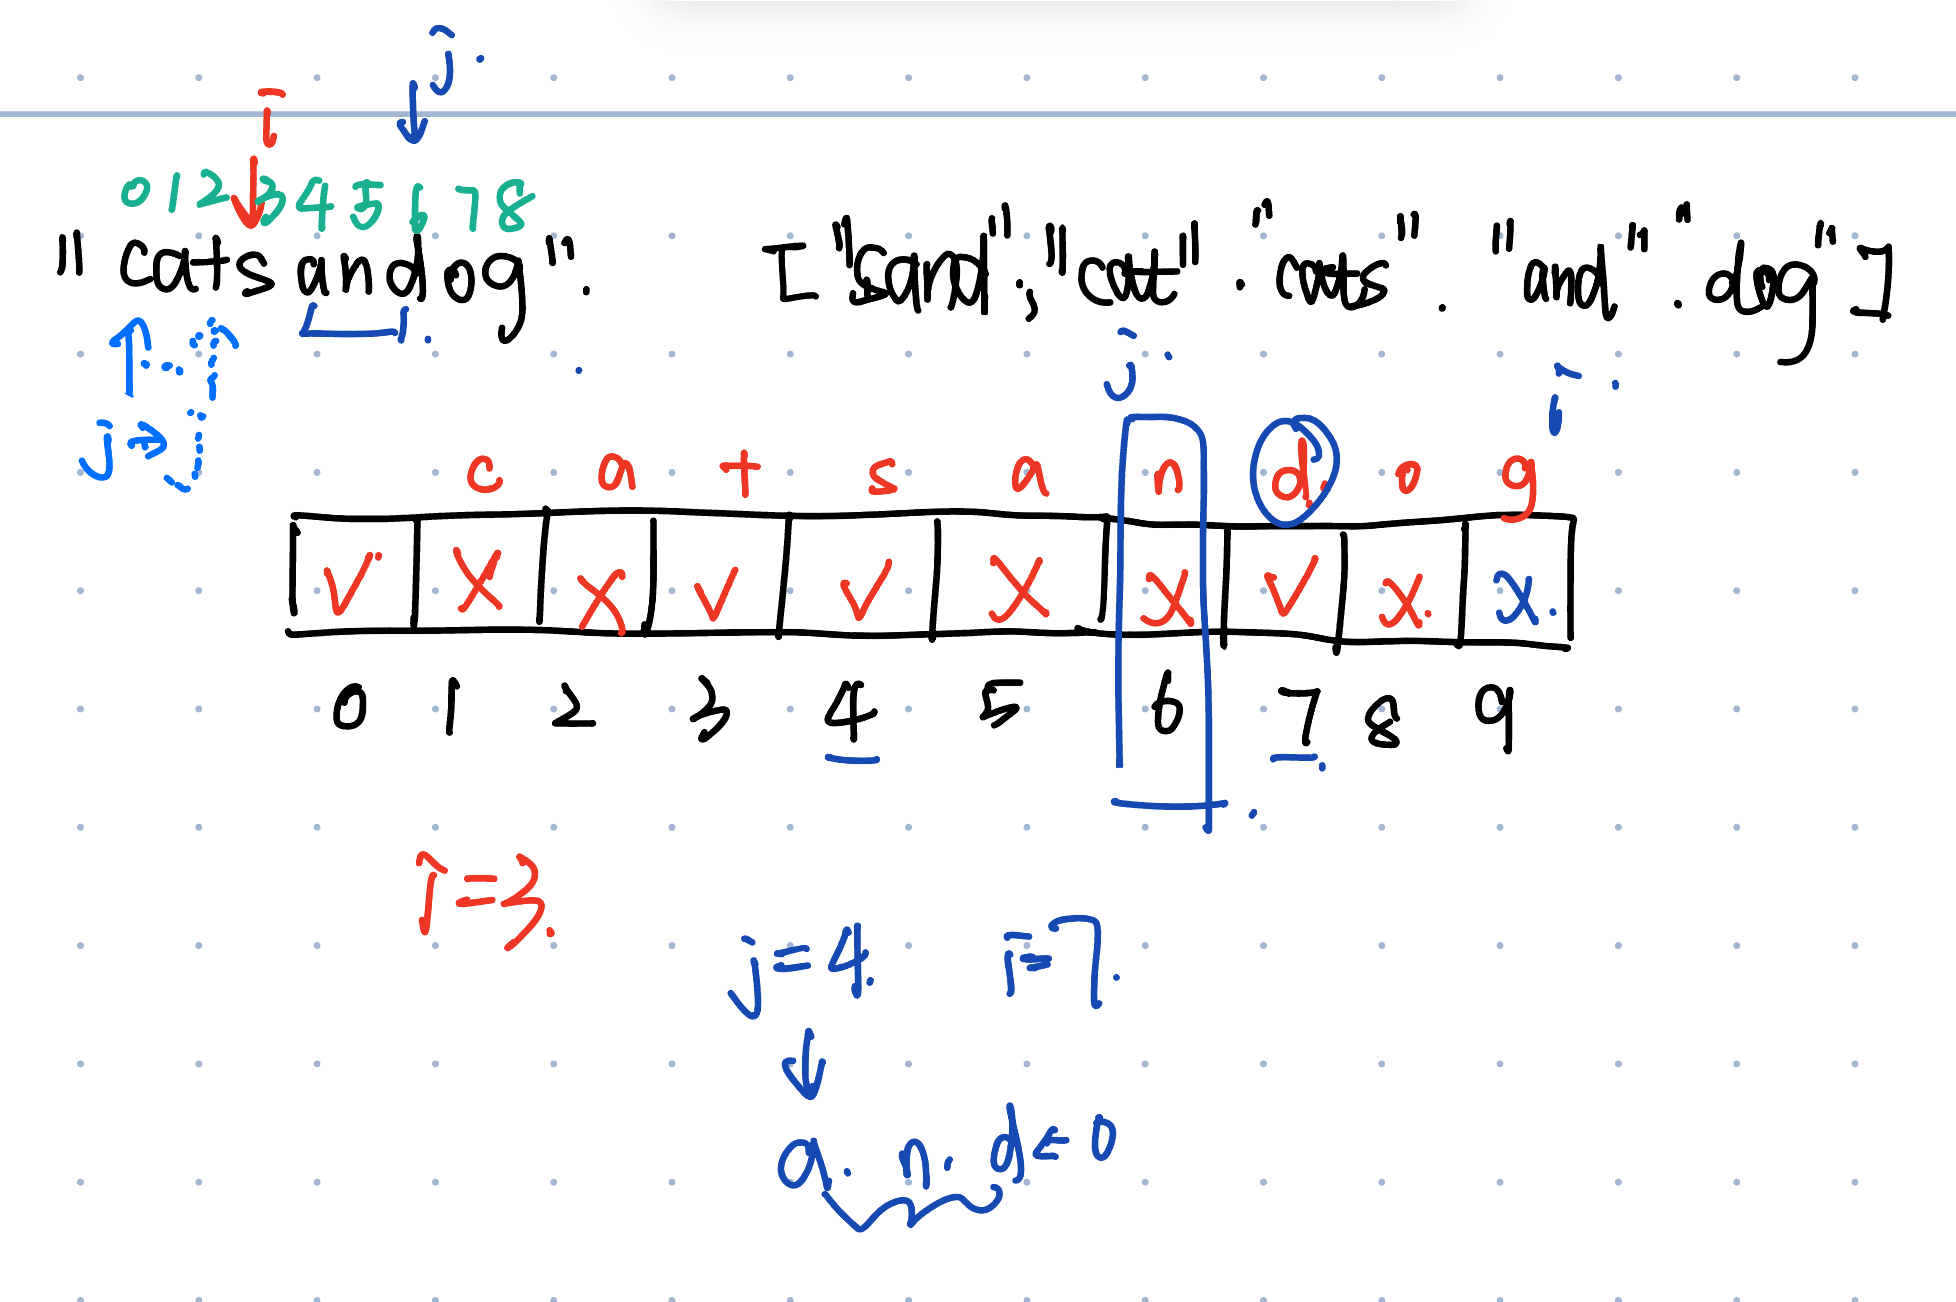 j.
i
0 1 2 3 4 5 6 7 8
"catsandog". ["sand", "cat". "cats". "and". "dog"]
j → j
j. i.
c a t s a n d. o g
V X X V V X X V X. X.
0 1 2 3 4 5 6 7 8 9
i=3.
j=4. i=7.
a. n. d ← 0